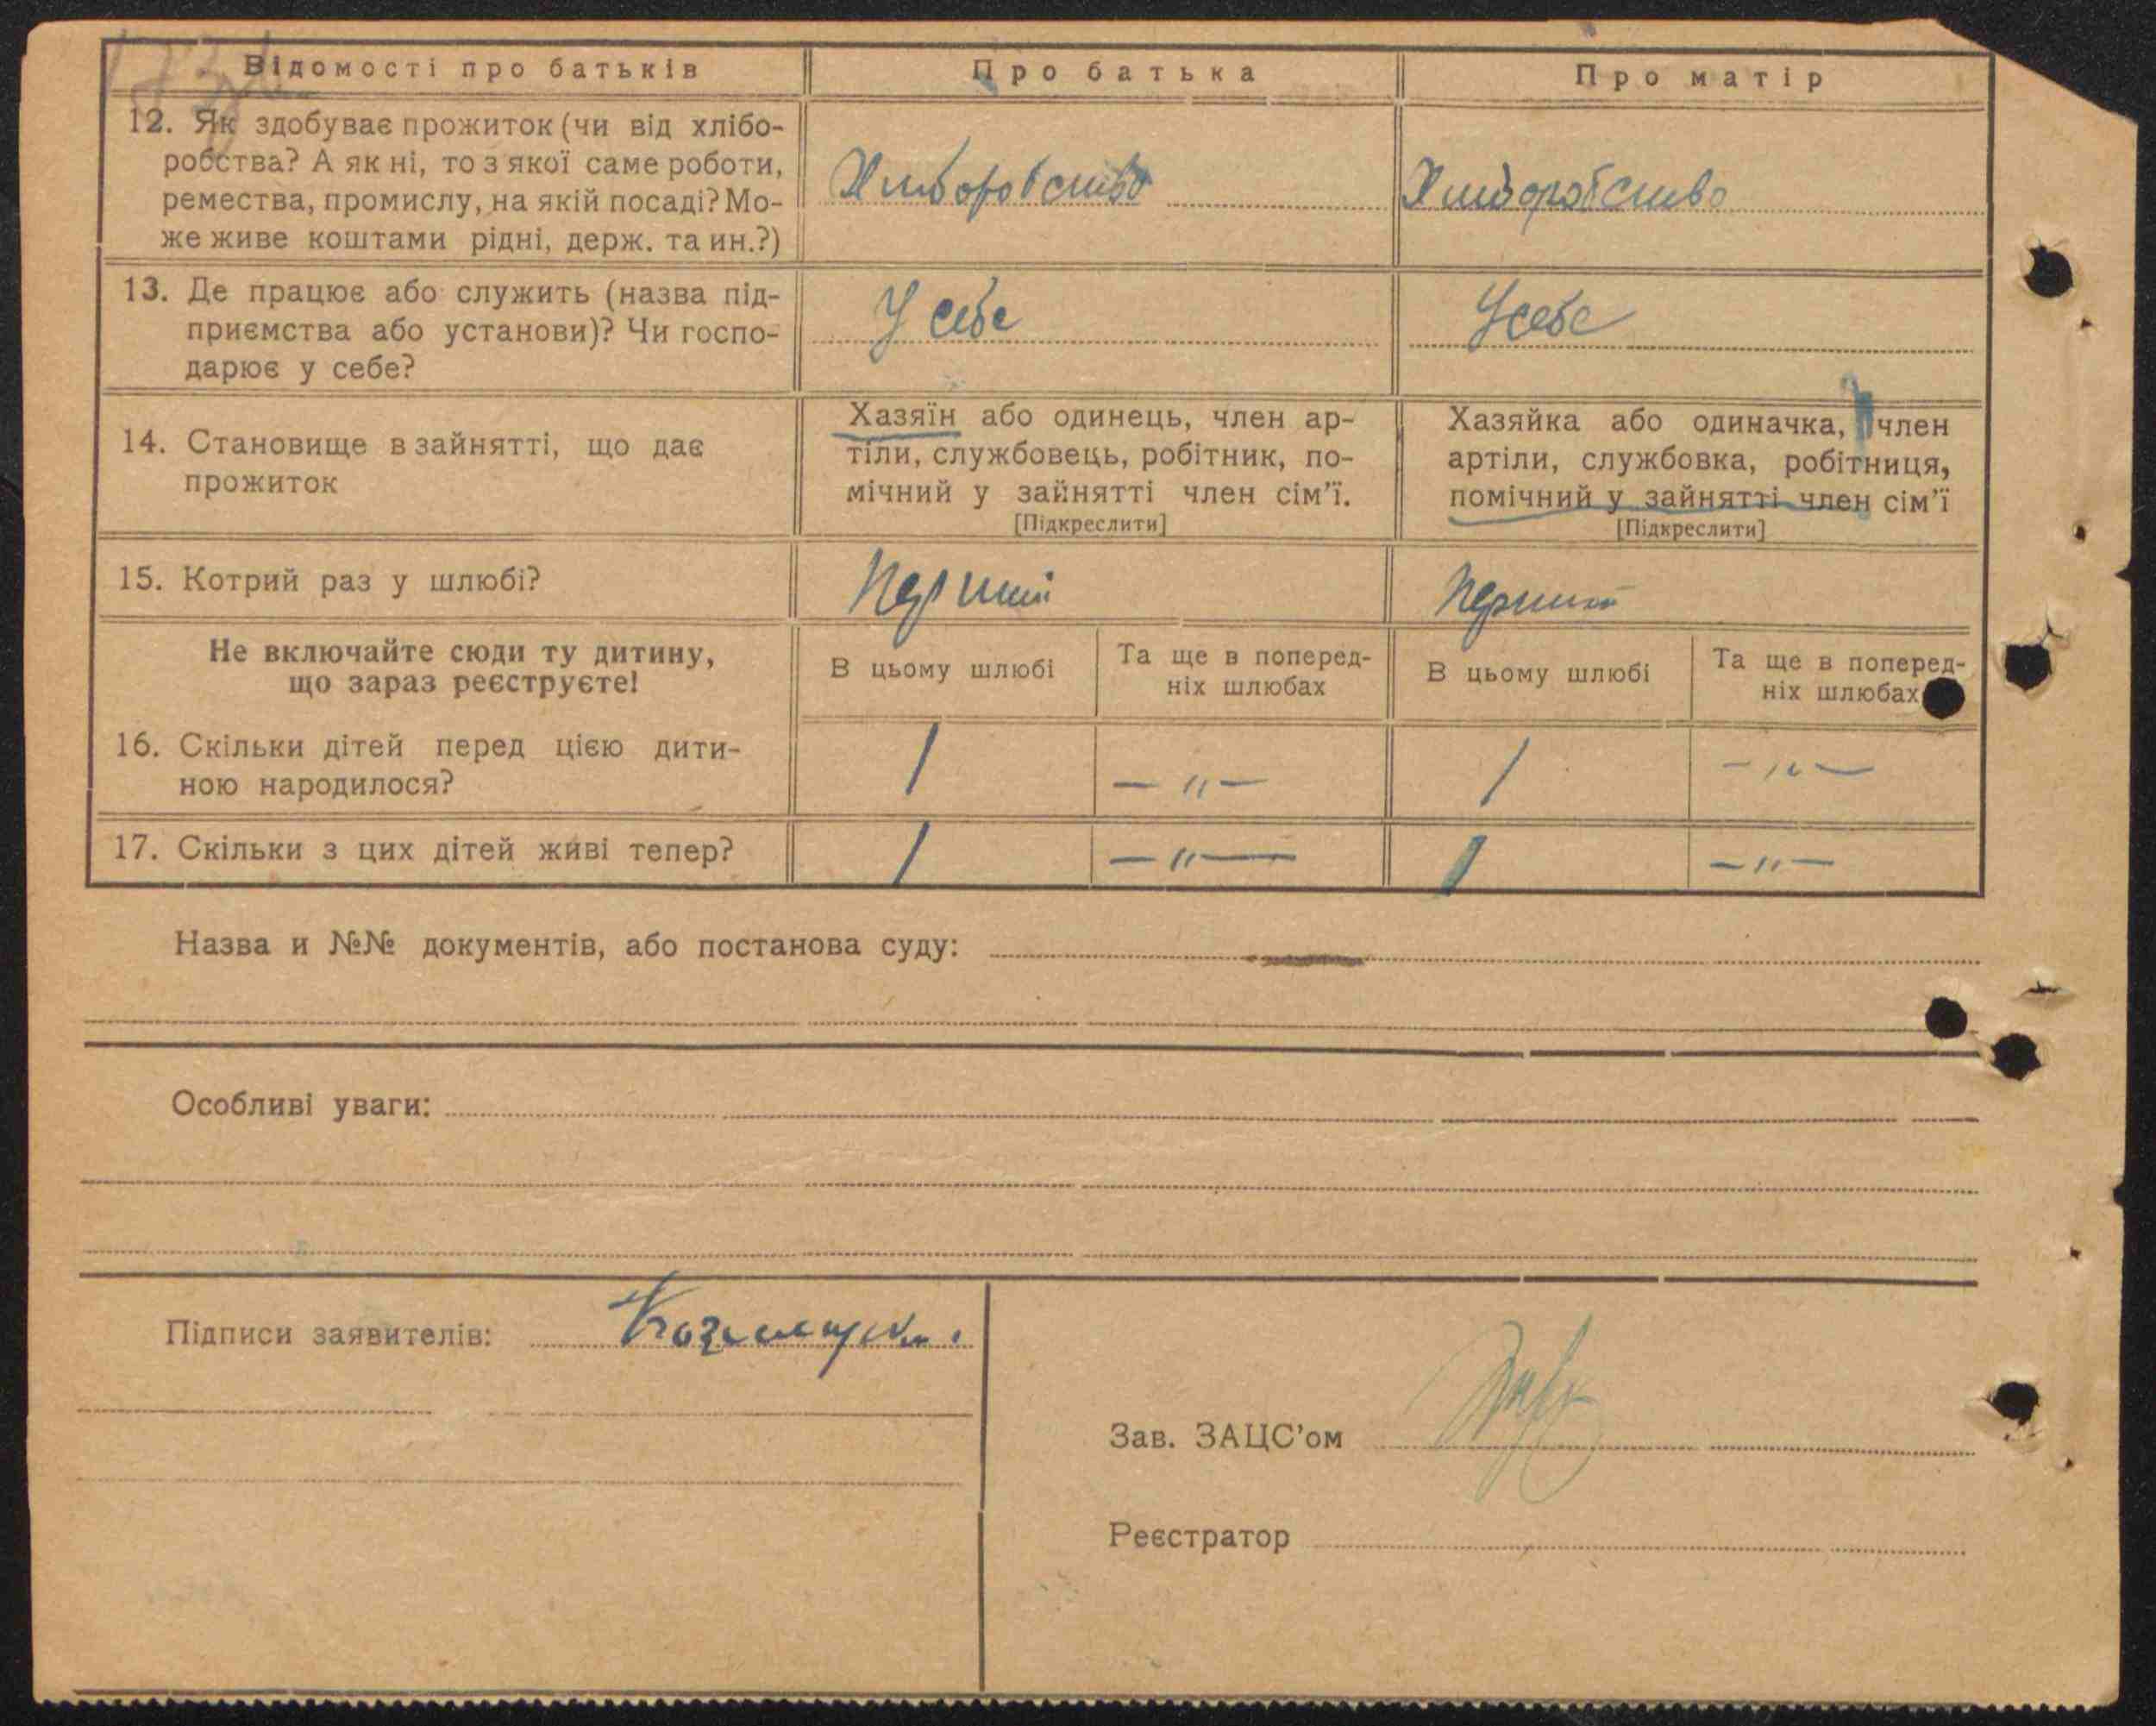 Відомості про батьків
Про батька
Про матір
12. Як здобуває прожиток (чи від хлібо-
робства? А як ні, то з якої саме роботи,
ремества, промислу, на якій посаді? Мо-
же живе коштами рідні, держ. та ин.?)
Хліборобство
Хліборобство
13. Де працює або служить (назва під-
приємства або установи)? Чи госпо-
дарює у себе?
У себе
У себе
14. Становище в зайнятті, що дає
прожиток
Хазяїн або одинець, член ар-
тіли, службовець, робітник, по-
мічний у зайнятті член сім'ї.
[Підкреслити]
Хазяйка або одиначка, член
артіли, службовка, робітниця,
помічний у зайнятті член сім'ї
[Підкреслити]
15. Котрий раз у шлюбі?
Перший
Перший
Не включайте сюди ту дитину,
що зараз реєструєте!
В цьому шлюбі
Та ще в поперед-
ніх шлюбах
В цьому шлюбі
Та ще в поперед-
ніх шлюбах
16. Скільки дітей перед цією дити-
ною народилося?
1
— " —
1
— " —
17. Скільки з цих дітей живі тепер?
1
— " —
1
— " —
Назва и №№ документів, або постанова суду:
Особливі уваги:
Підписи заявителів:
Зав. ЗАЦС'ом
Реєстратор